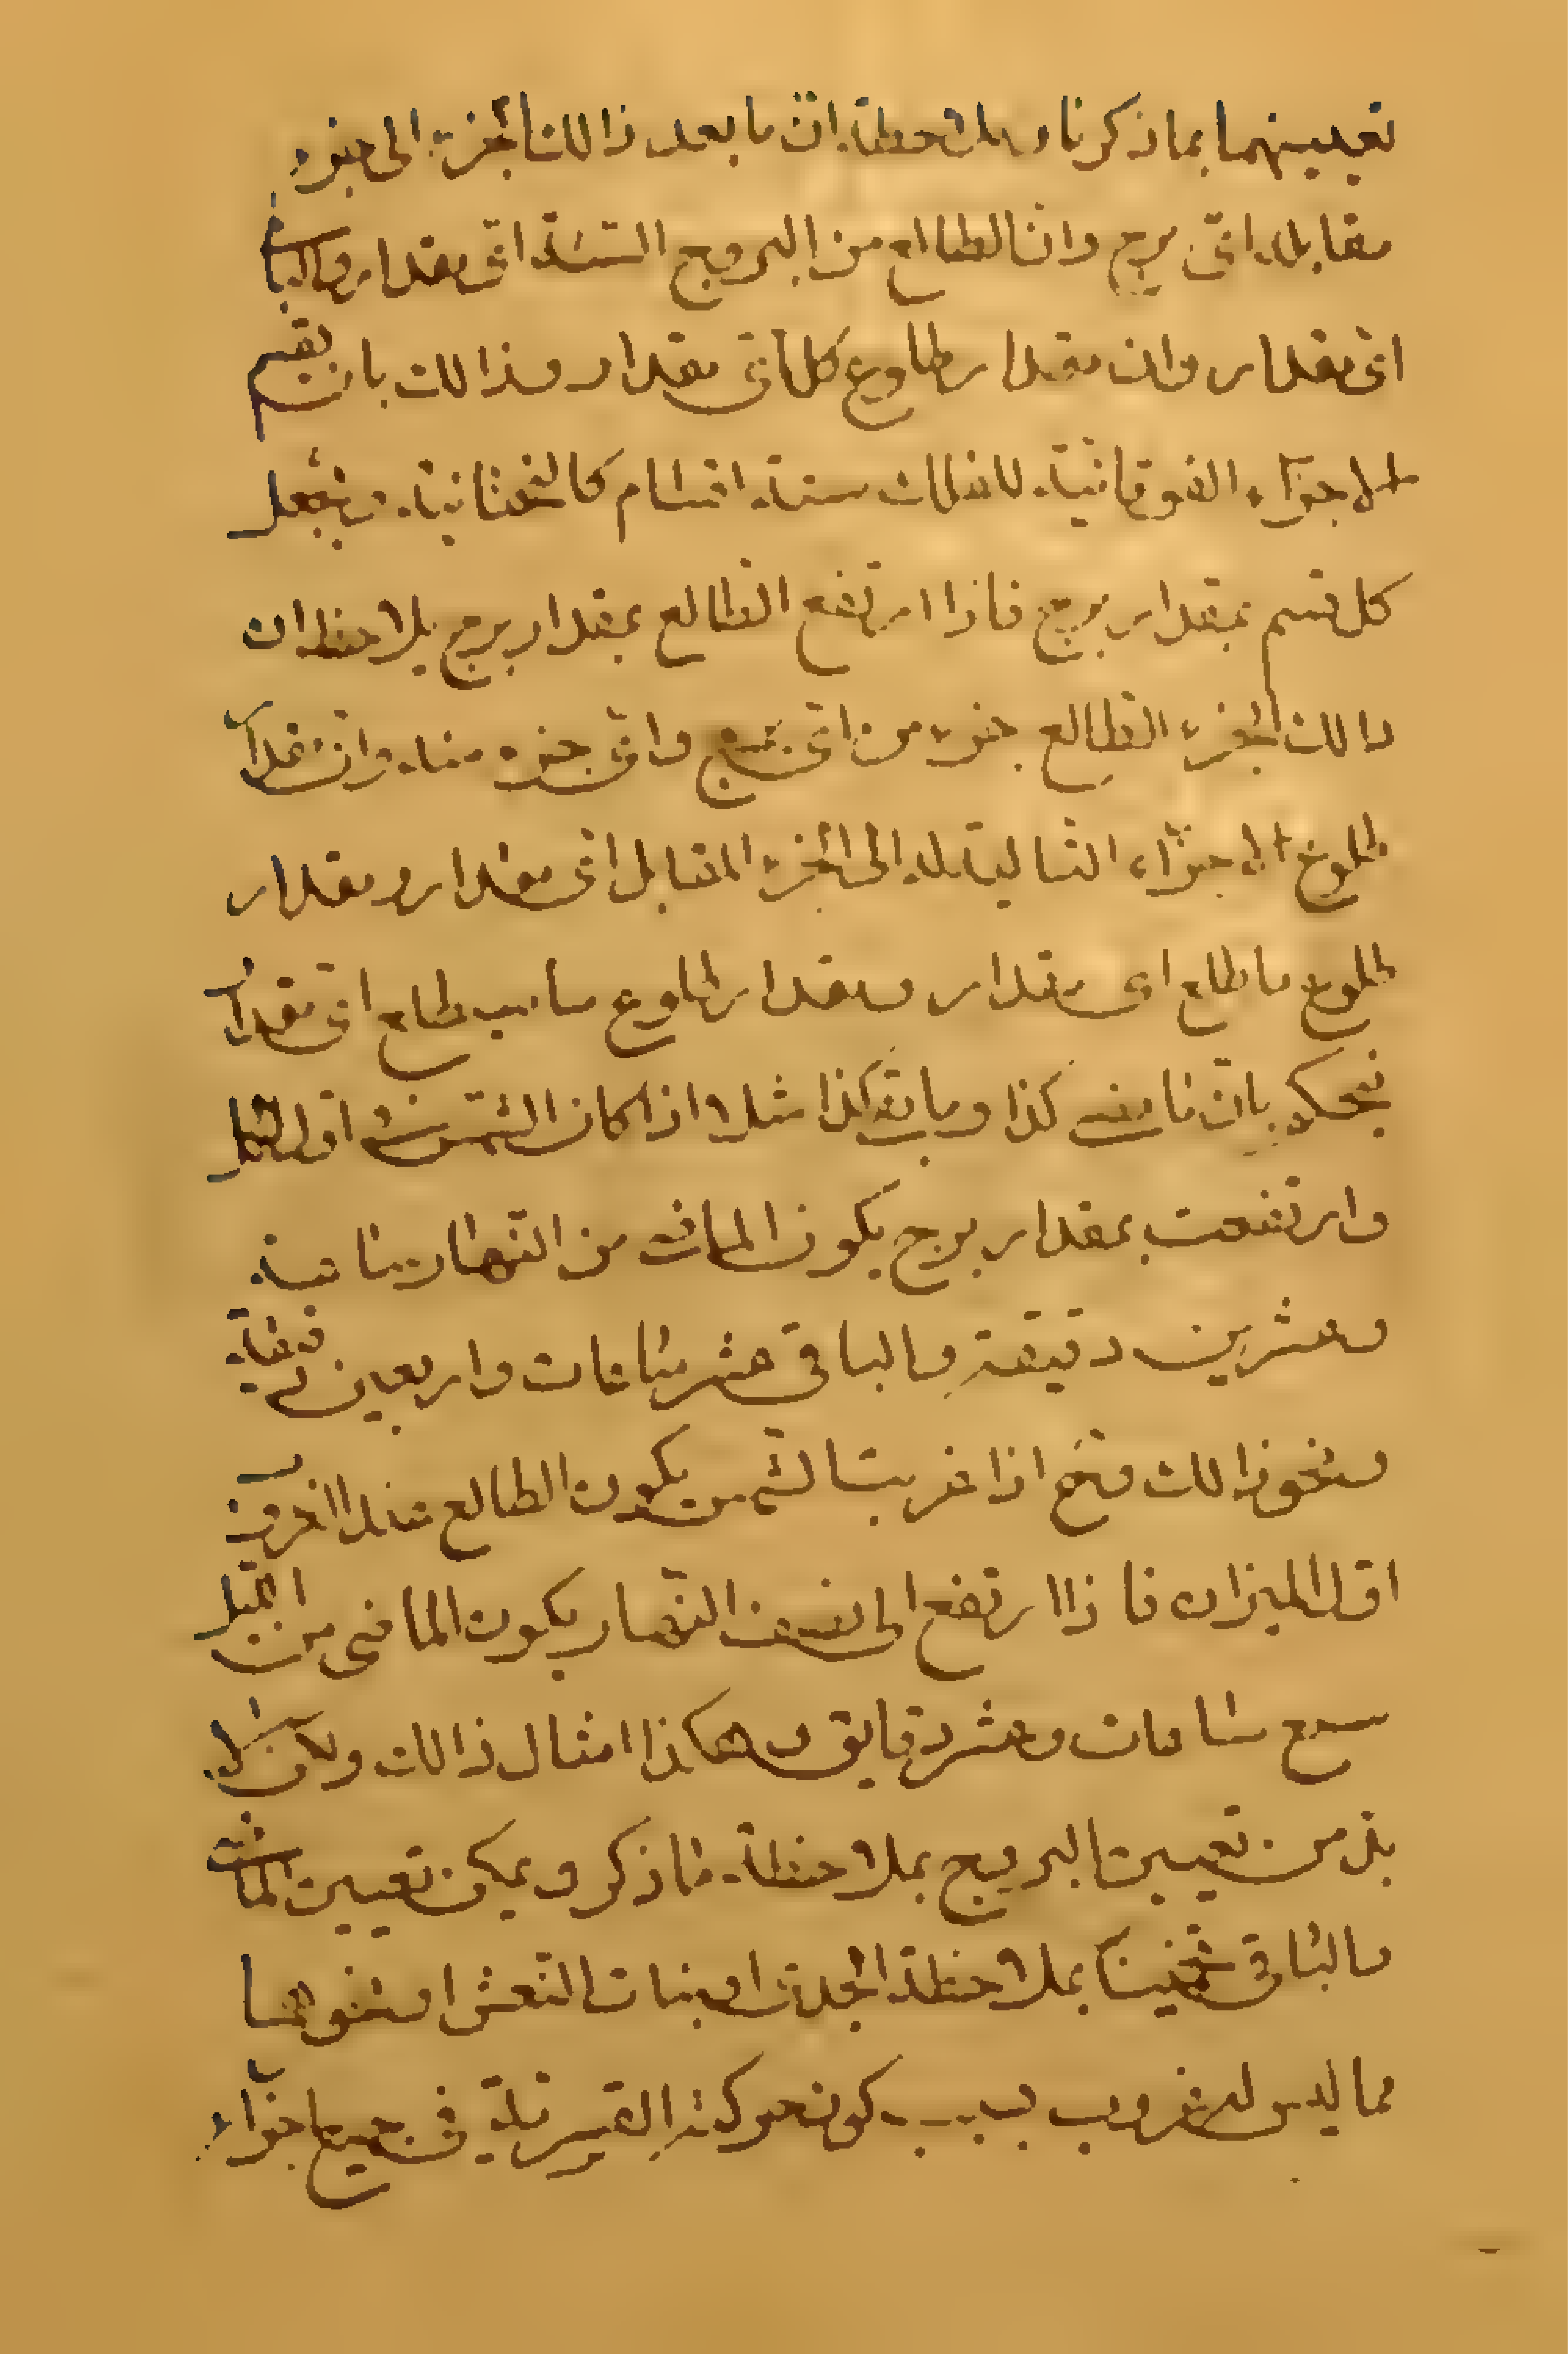 تعيينهما بما ذكرنا وبملاحظة انّ ما بعد ذالك الجزء الى جزء
مقابله اىّ برج وانّ الطالع من البروج الستّة اىّ مقدار والباقي
اىّ مقدار وان مقدار طلوع كل اىّ مقدار وذالك بان تقسم
الاجزاء الفوقانيّة للفلك ستة اقسام كالتحتانية وتجعل
كل قسم بمقدار برج فاذا ارتفع الطالع بمقدار برج يلاحظ ان
ذالك الجزء الطالع جزء من اىّ برج واىّ جزء منه وانّ مقدار
طلوع الاجزاء التالية له الى الجزء المقابل اىّ مقدار ومقدار
طلوع ما طلع اى مقدار ومقدار طلوع ما لم يطلع اىّ مقدار
فيحكم بانّ ما مضى كذا وما بقى كذا مثلا اذا كان الشمس في اوّل الحمل
وارتفعت بمقدار برج يكون الماضي من النّهار ساعة
وعشرين دقيقة والباقي عشر ساعات واربعين دقيقة
ونحو ذالك ومع اذا غربت الشّمس يكون الطالع عند الغروب
اوّل الميزان فاذا ارتفع الى نصف النّهار يكون الماضى من الليل
سبع ساعات وعشر دقايق وهكذا امثال ذالك ولكن لا
بدّ من تعيين البروج بملاحظة ما ذكر ويمكن تعيين الماضي
والباقي تخمينًا بملاحظة الجدى او بنات النّعش او نحوهما
مما ليس له غروب بسبب كون حركته القسريّة في جميع اجزاء